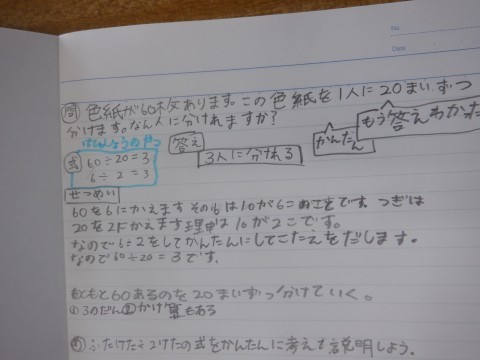 No.
Date
問 色紙が60枚あります。この色紙を1人に20まいずつ
分けます。なん人に分けれますか?
かんたん
もう答えわかった
答え
3人に分れる
式
60÷20=3
6÷2=3
せつめい
60を6にかえます その6は10が6このことです。つぎは
20を2にかえます理由は10が2こです。
なので6÷2をしてかんたんにしてこたえをだします。
なので60÷20=3です。
もともと60あるのを20まいずつ分けていく。
① 3のだん ② かけ算もある
2けたの式をかんたんに考えて説明しよう。